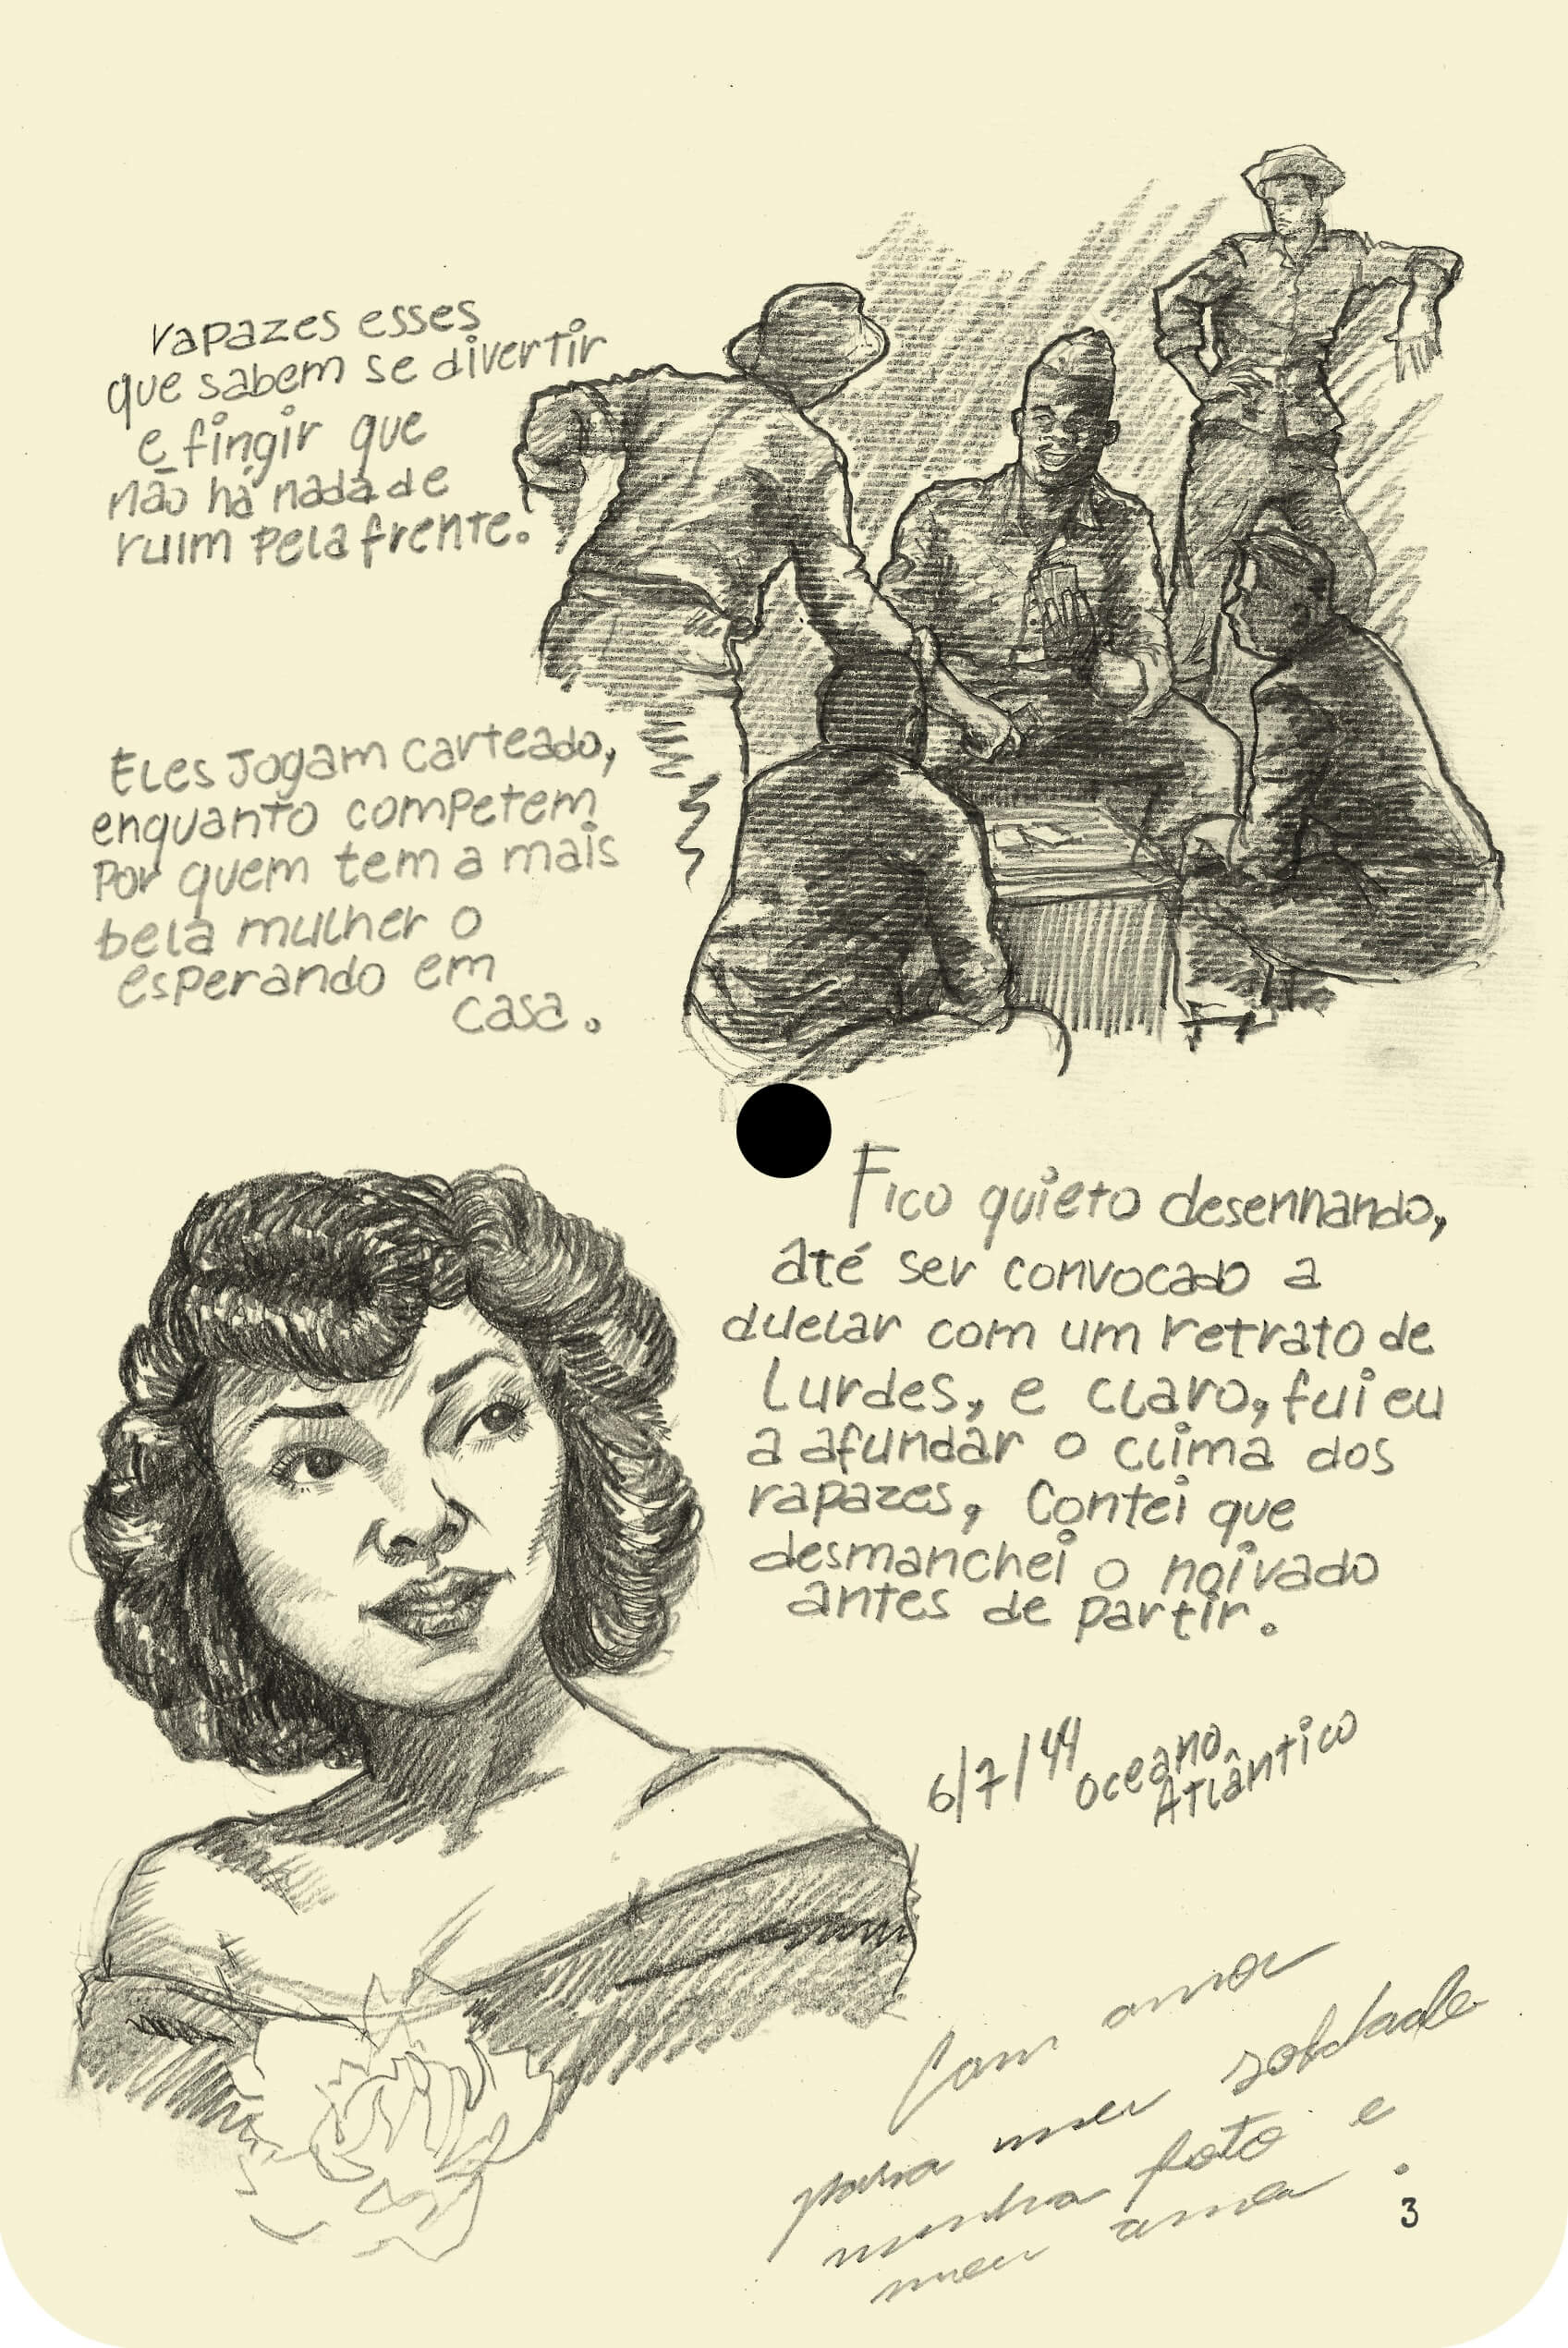 rapazes esses
que sabem se divertir
e fingir que
não há nada de
ruim pela frente.
Eles jogam carteado,
enquanto competem
por quem tem a mais
bela mulher o
esperando em
casa.
Fico quieto desenhando,
até ser convocado a
duelar com um retrato de
Lurdes, e claro, fui eu
a afundar o clima dos
rapazes, Contei que
desmanchei o noivado
antes de partir.
6/7/44 Oceano
Atlântico
Com amor
para meu soldado
minha foto e
meu amor.
3